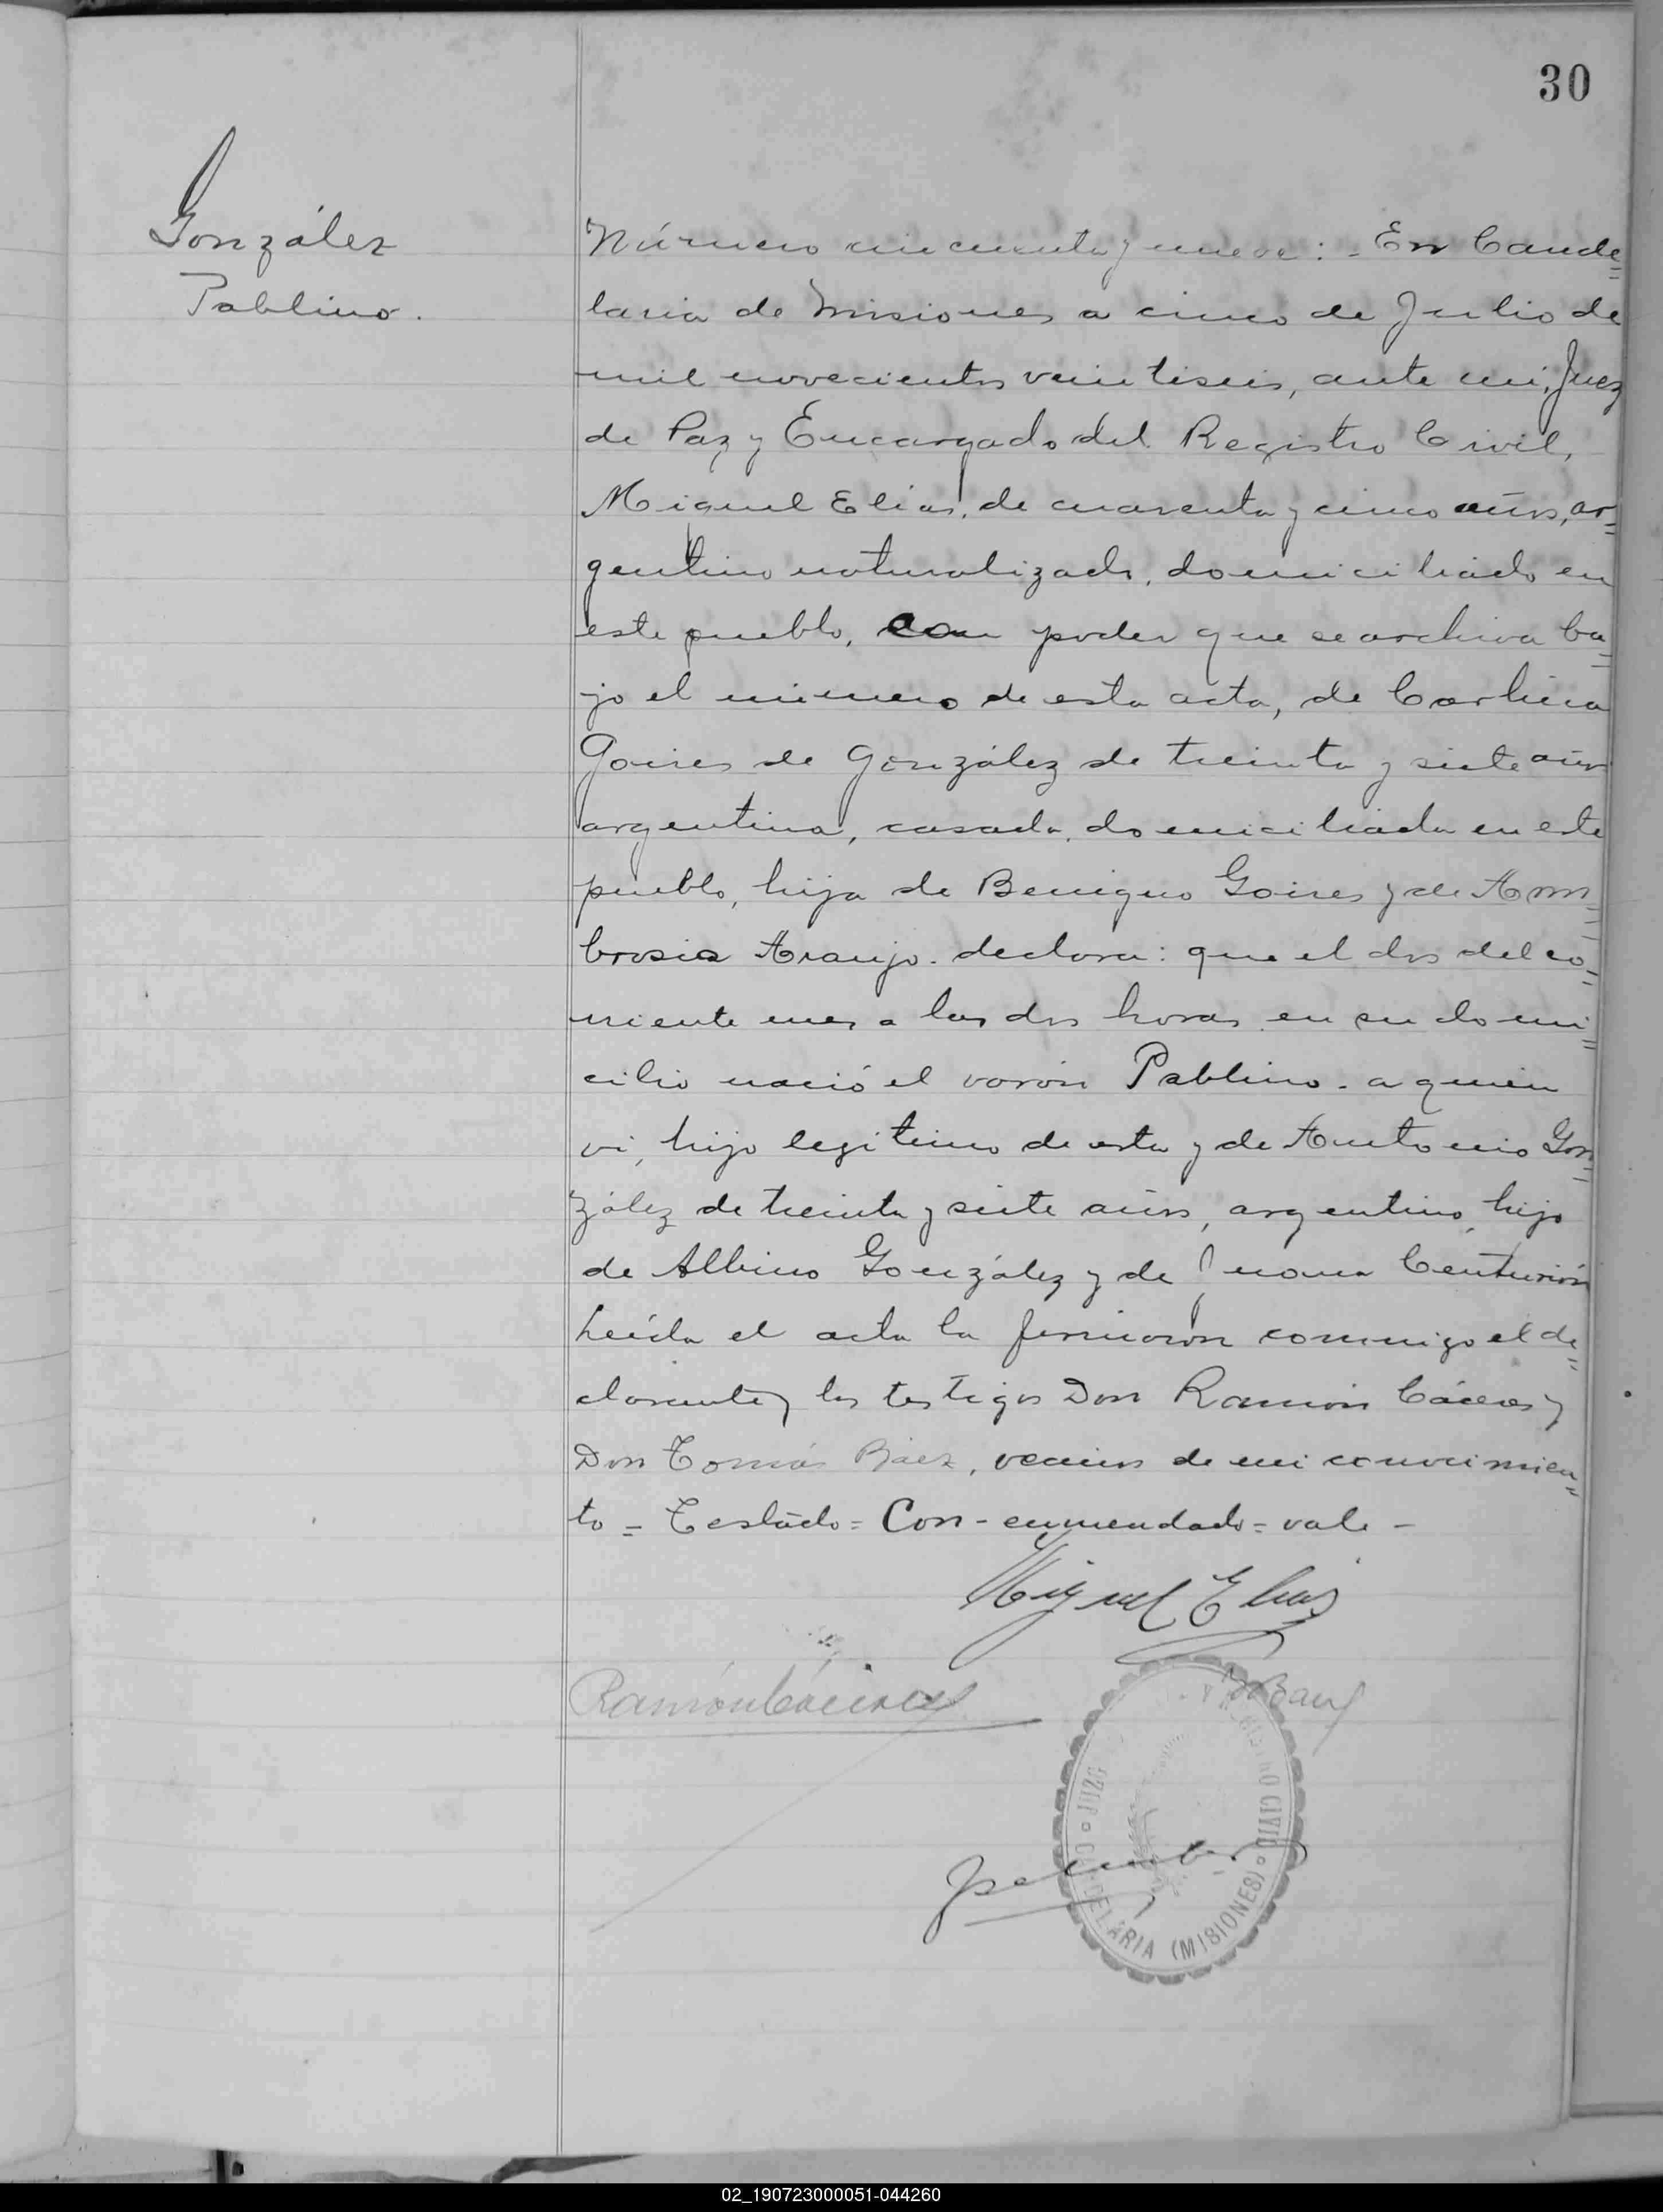 30
González
Pablino.
Número cincuenta y nueve: = En Cande=
laria de Misiones a cinco de Julio de
mil novecientos veintiseis, ante mí, Juez
de Paz y Encargado del Registro Civil,
Miguel Elias, de cuarenta y cinco años, ar=
gentino naturalizado, domiciliado en
este pueblo, con poder que se archiva ba=
jo el número de esta acta, de
Goires de González de treinta y siete años
argentina, casada, domiciliada en este
pueblo, hija de Benigno Goires y de Am=
brosia Araujo. declara: que el dos del co=
rriente mes a las dos horas en su domi=
cilio nació el varón Pablino. a quien
vi, hijo legitimo de esta y de Antonio Gon=
zález de treinta y siete años, argentino, hijo
de Albino González y de Juana Centurión
Leída el acta la firmaron conmigo el de=
clarante y los testigos Don Ramón Cáceres y
Don Tomás Báez, vecinos de mi conocimien=
to = Testado = Con - enmendado = vale -
Miguel Elias
Ramón Cáceres
JUZG REGISTRO CIVIL CANDELARIA (MISIONES)
02_190723000051-044260